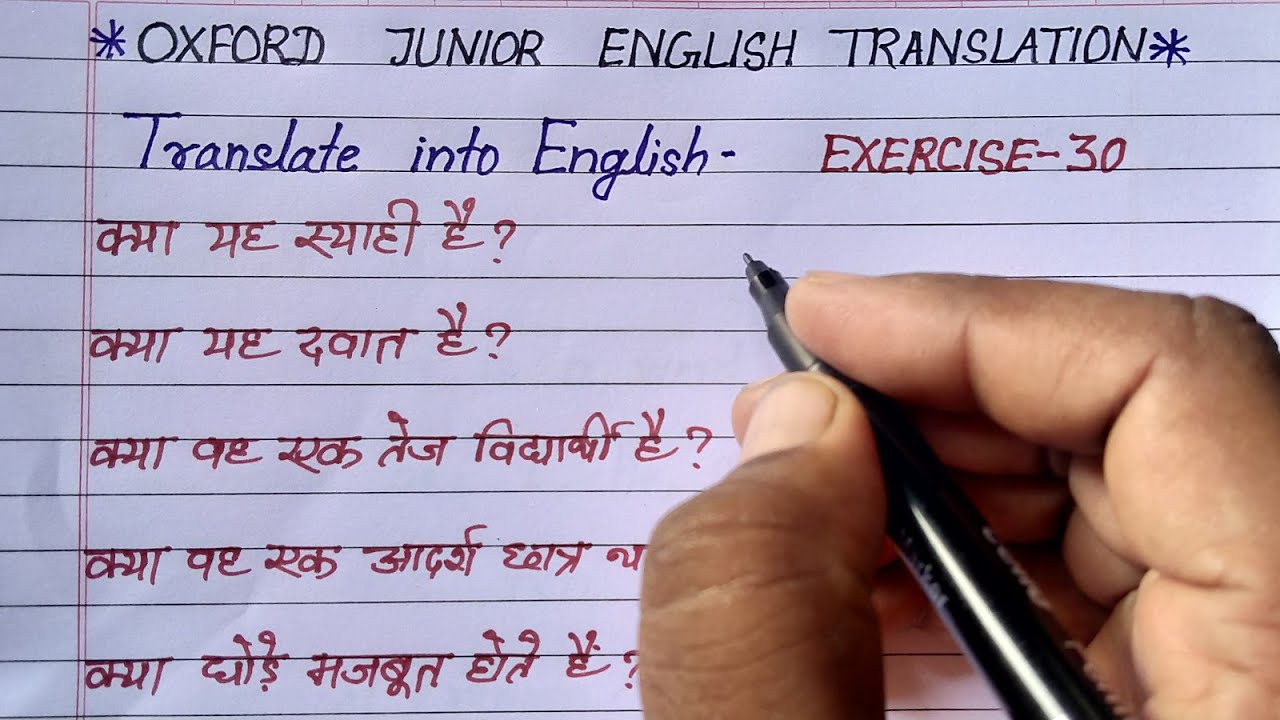 *OXFORD JUNIOR ENGLISH TRANSLATION*
Translate into English- EXERCISE-30
क्या यह स्याही है?
क्या यह दवात है?
क्या वह एक तेज विद्यार्थी है?
क्या वह एक आदर्श छात्र
क्या घोड़े मजबूत होते हैं?